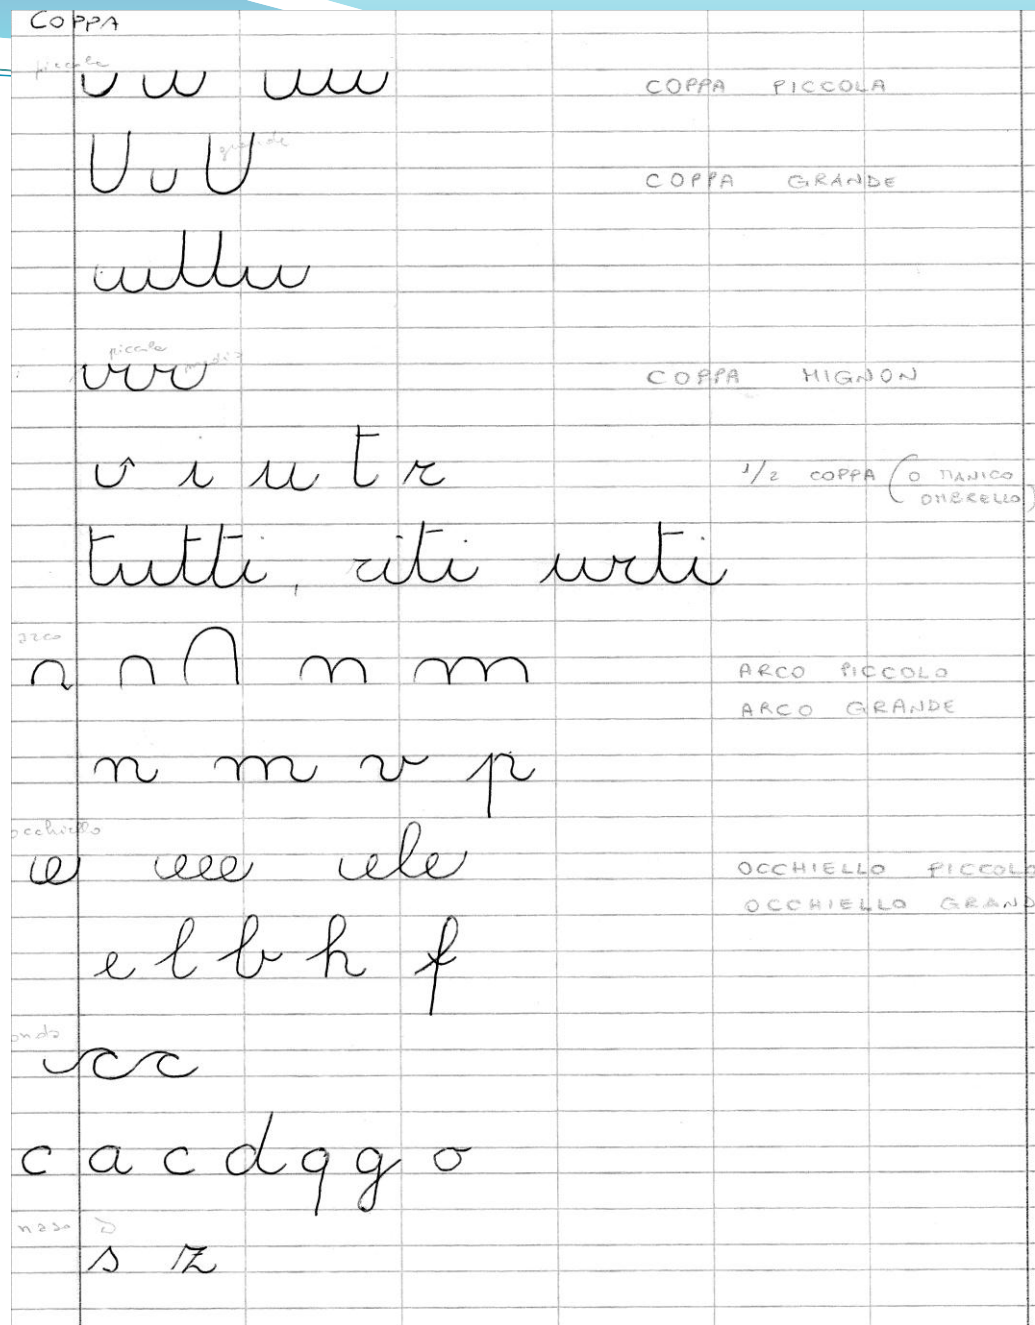 COPPA
piccola
COPPA PICCOLA
grande
U u U
COPPA GRANDE
piccola
COPPA MIGNON
i u t r
1/2 COPPA (O MANICO OMBRELLO)
tutti, riti urti
arco
n m
ARCO PICCOLO
ARCO GRANDE
n m v p
occhiello
e eee ele
OCCHIELLO PICCOLO
OCCHIELLO GRAND
e l b h f
onda
c c
c a c d q g o
naso
s z